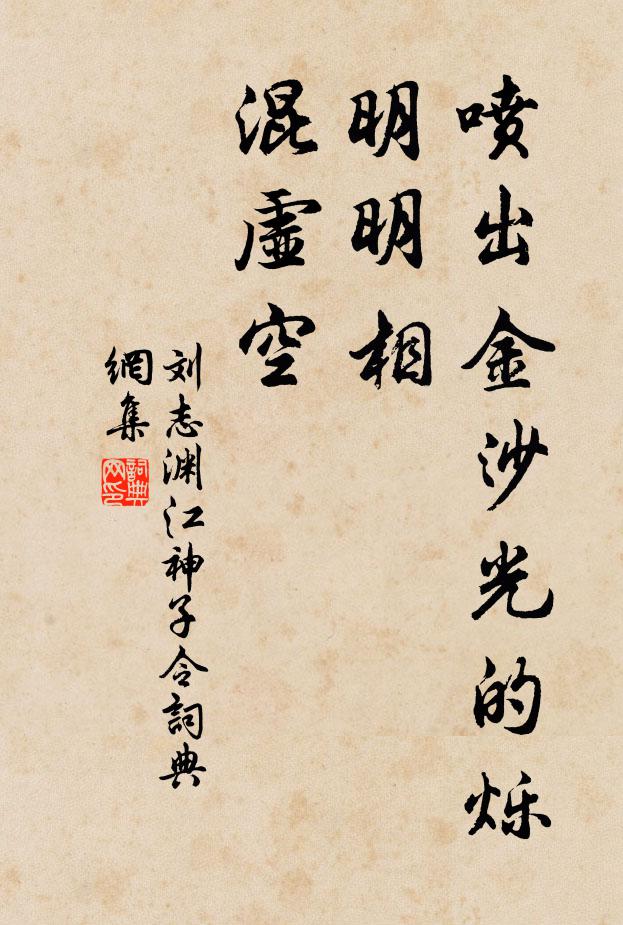 喷出金沙光的烁
明明相
混虚空
刘志渊江神子令词典
網集
詞典网印